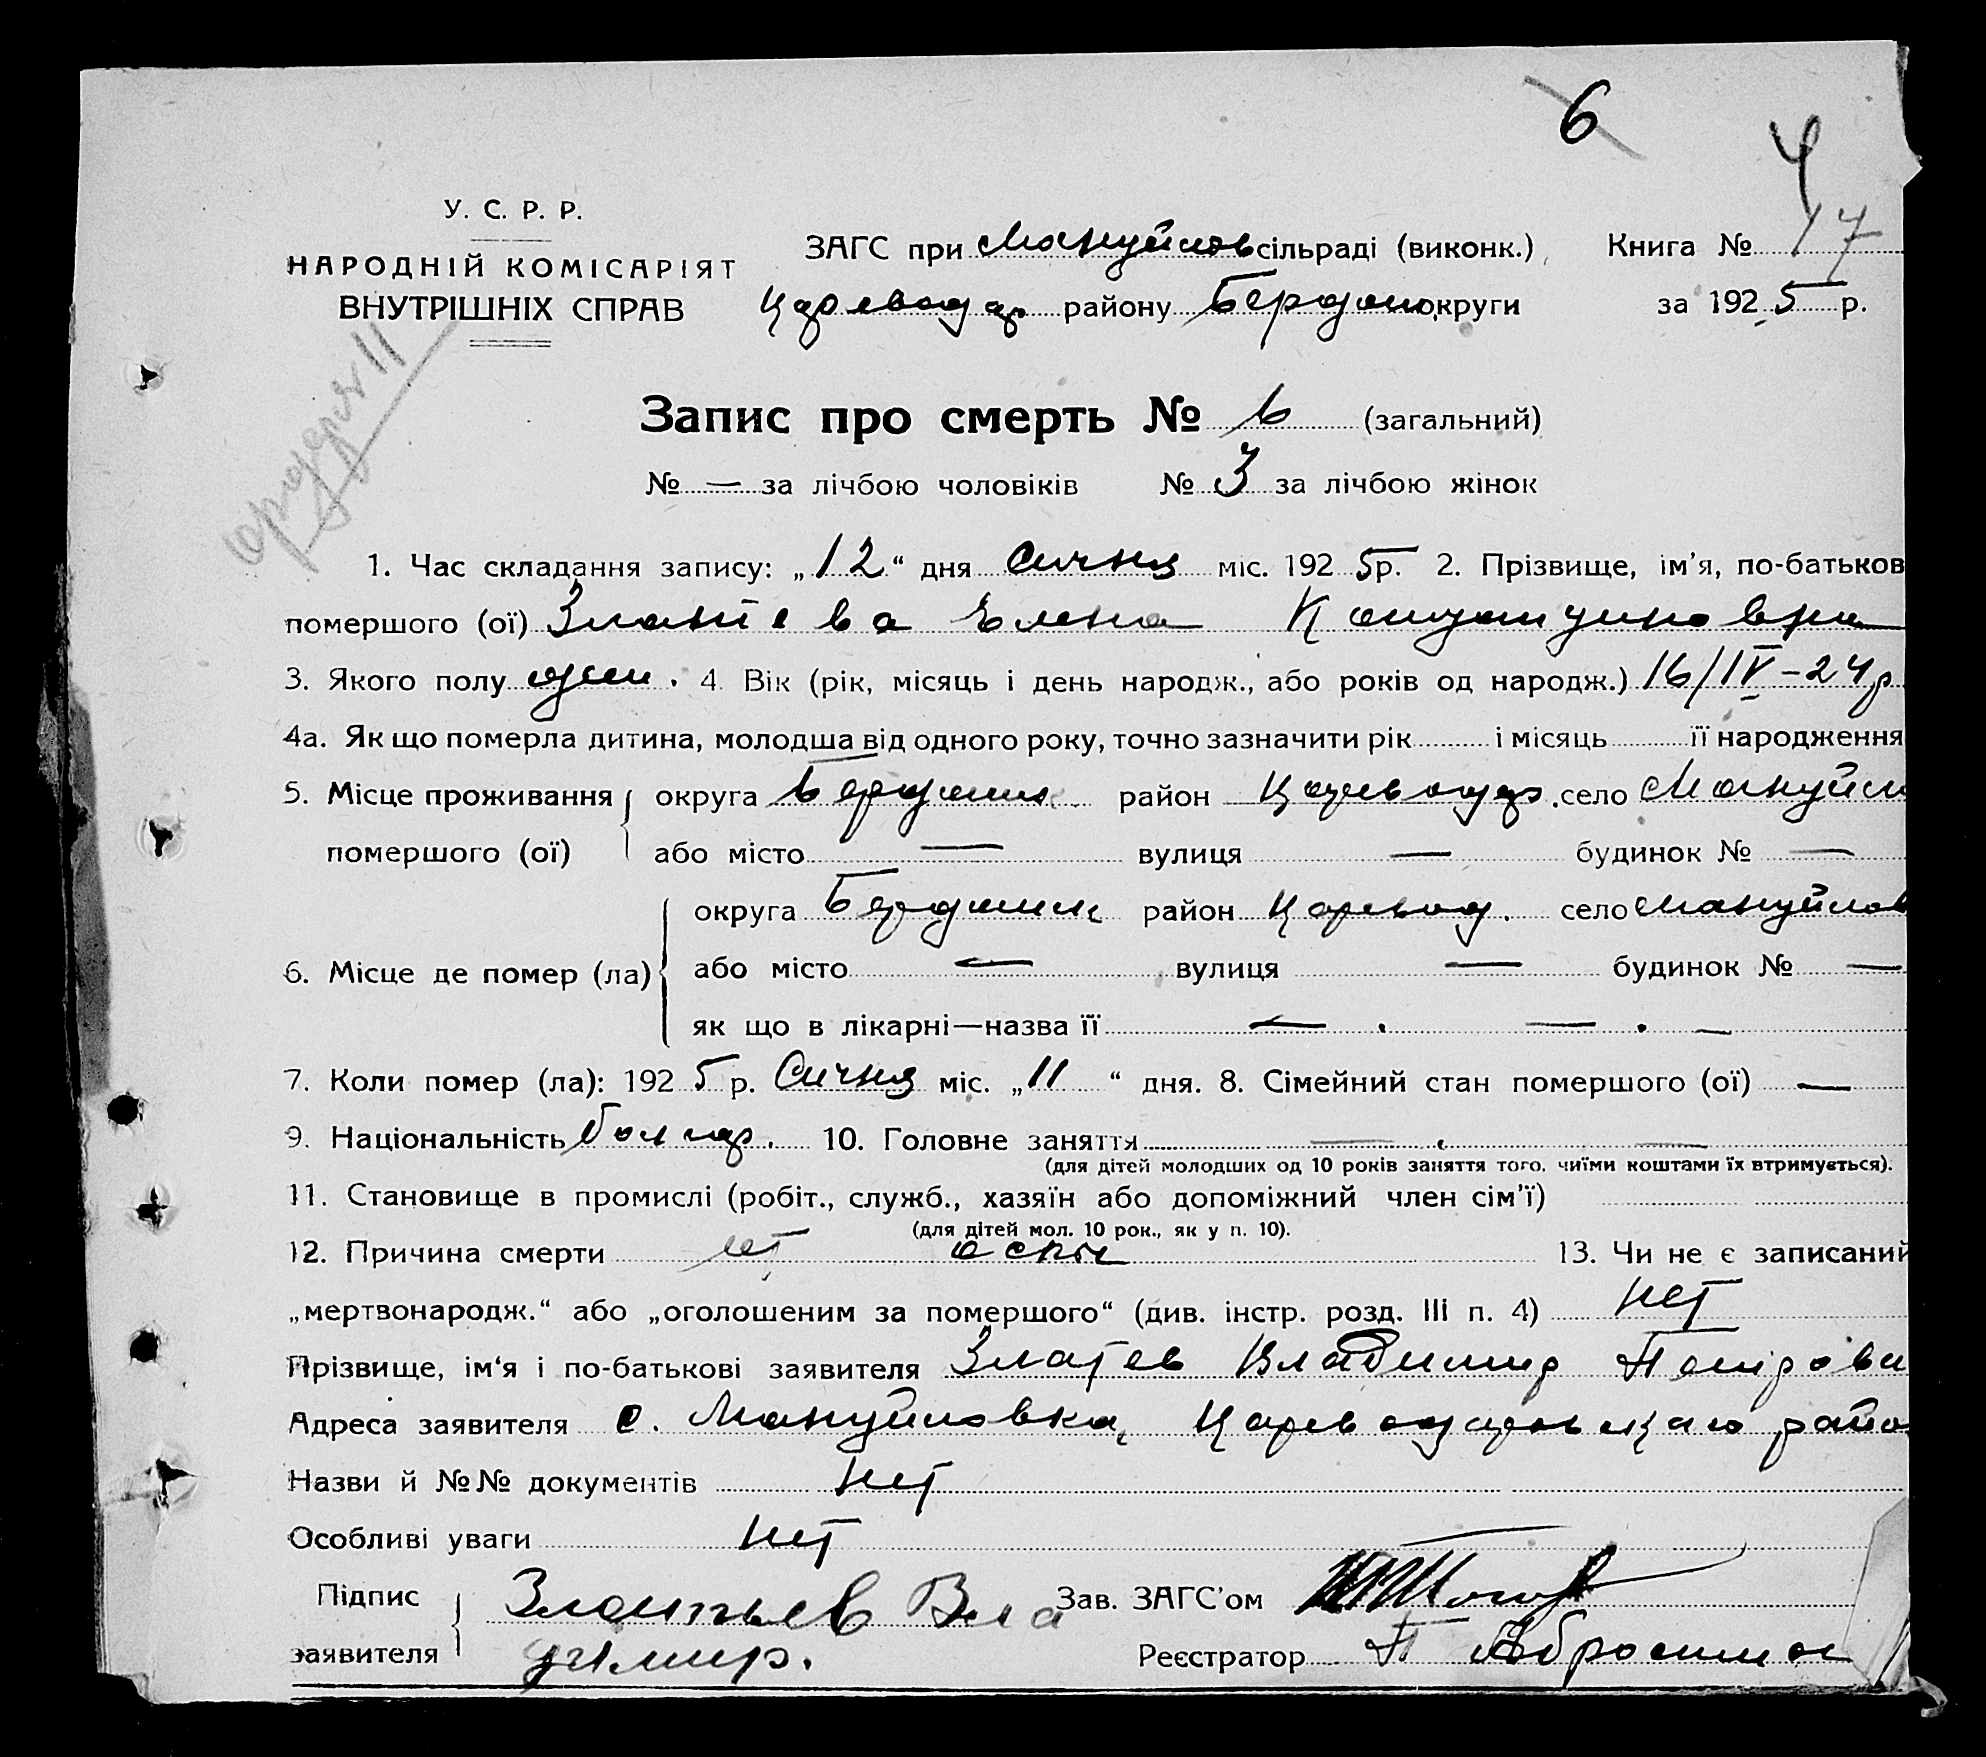 6
У. С. Р. Р.
НАРОДНІЙ КОМІСАРІЯТ
ВНУТРІШНІХ СПРАВ
ЗАГС при Мануйлов сільраді (виконк.) Книга №
Царевода р. району Бердян округи за 1925 р.
Запис про смерть № 6 (загальний)
№ — за лічбою чоловіків № 3 за лічбою жінок
1. Час складання запису: „12“ дня Сичня міс. 1925р. 2. Прізвище, ім'я, по-батьков
помершого (ої) Златева Елена Константиновна
3. Якого полу жен. 4. Вік (рік, місяць і день народж., або років од народж.) 16/IV–24р
4а. Як що померла дитина, молодша від одного року, точно зазначити рік і місяць її народження
5. Місце проживання округа Бердянск район Царевод. село Мануйло
помершого (ої) або місто — вулиця — будинок № —
округа Бердянск район Царевод. село Мануйлов
6. Місце де помер (ла) або місто — вулиця — будинок № —
як що в лікарні—назва її — . — . —
7. Коли помер (ла): 1925 р. Сичня міс. „11“ дня. 8. Сімейний стан помершого (ої) —
9. Національність болгар. 10. Головне заняття — . —
(для дітей молодших од 10 років заняття того, чиїми коштами їх втримується).
11. Становище в промислі (робіт., служб., хазяїн або допоміжний член сім'ї)
(для дітей мол. 10 рок., як у п. 10).
12. Причина смерти от оспы 13. Чи не є записаний
„мертвонародж.“ або „оголошеним за помершого“ (див. інстр. розд. III п. 4) нет
Прізвище, ім'я і по-батькові заявителя Златев Владимир Петрови
Адреса заявителя с. Мануйловка, Царевода ровскаго райо
Назви й №№ документів нет
Особливі уваги нет
Підпис заявителя Златьев Вла
димир.
Зав. ЗАГС'ом
Реєстратор П Абросимов